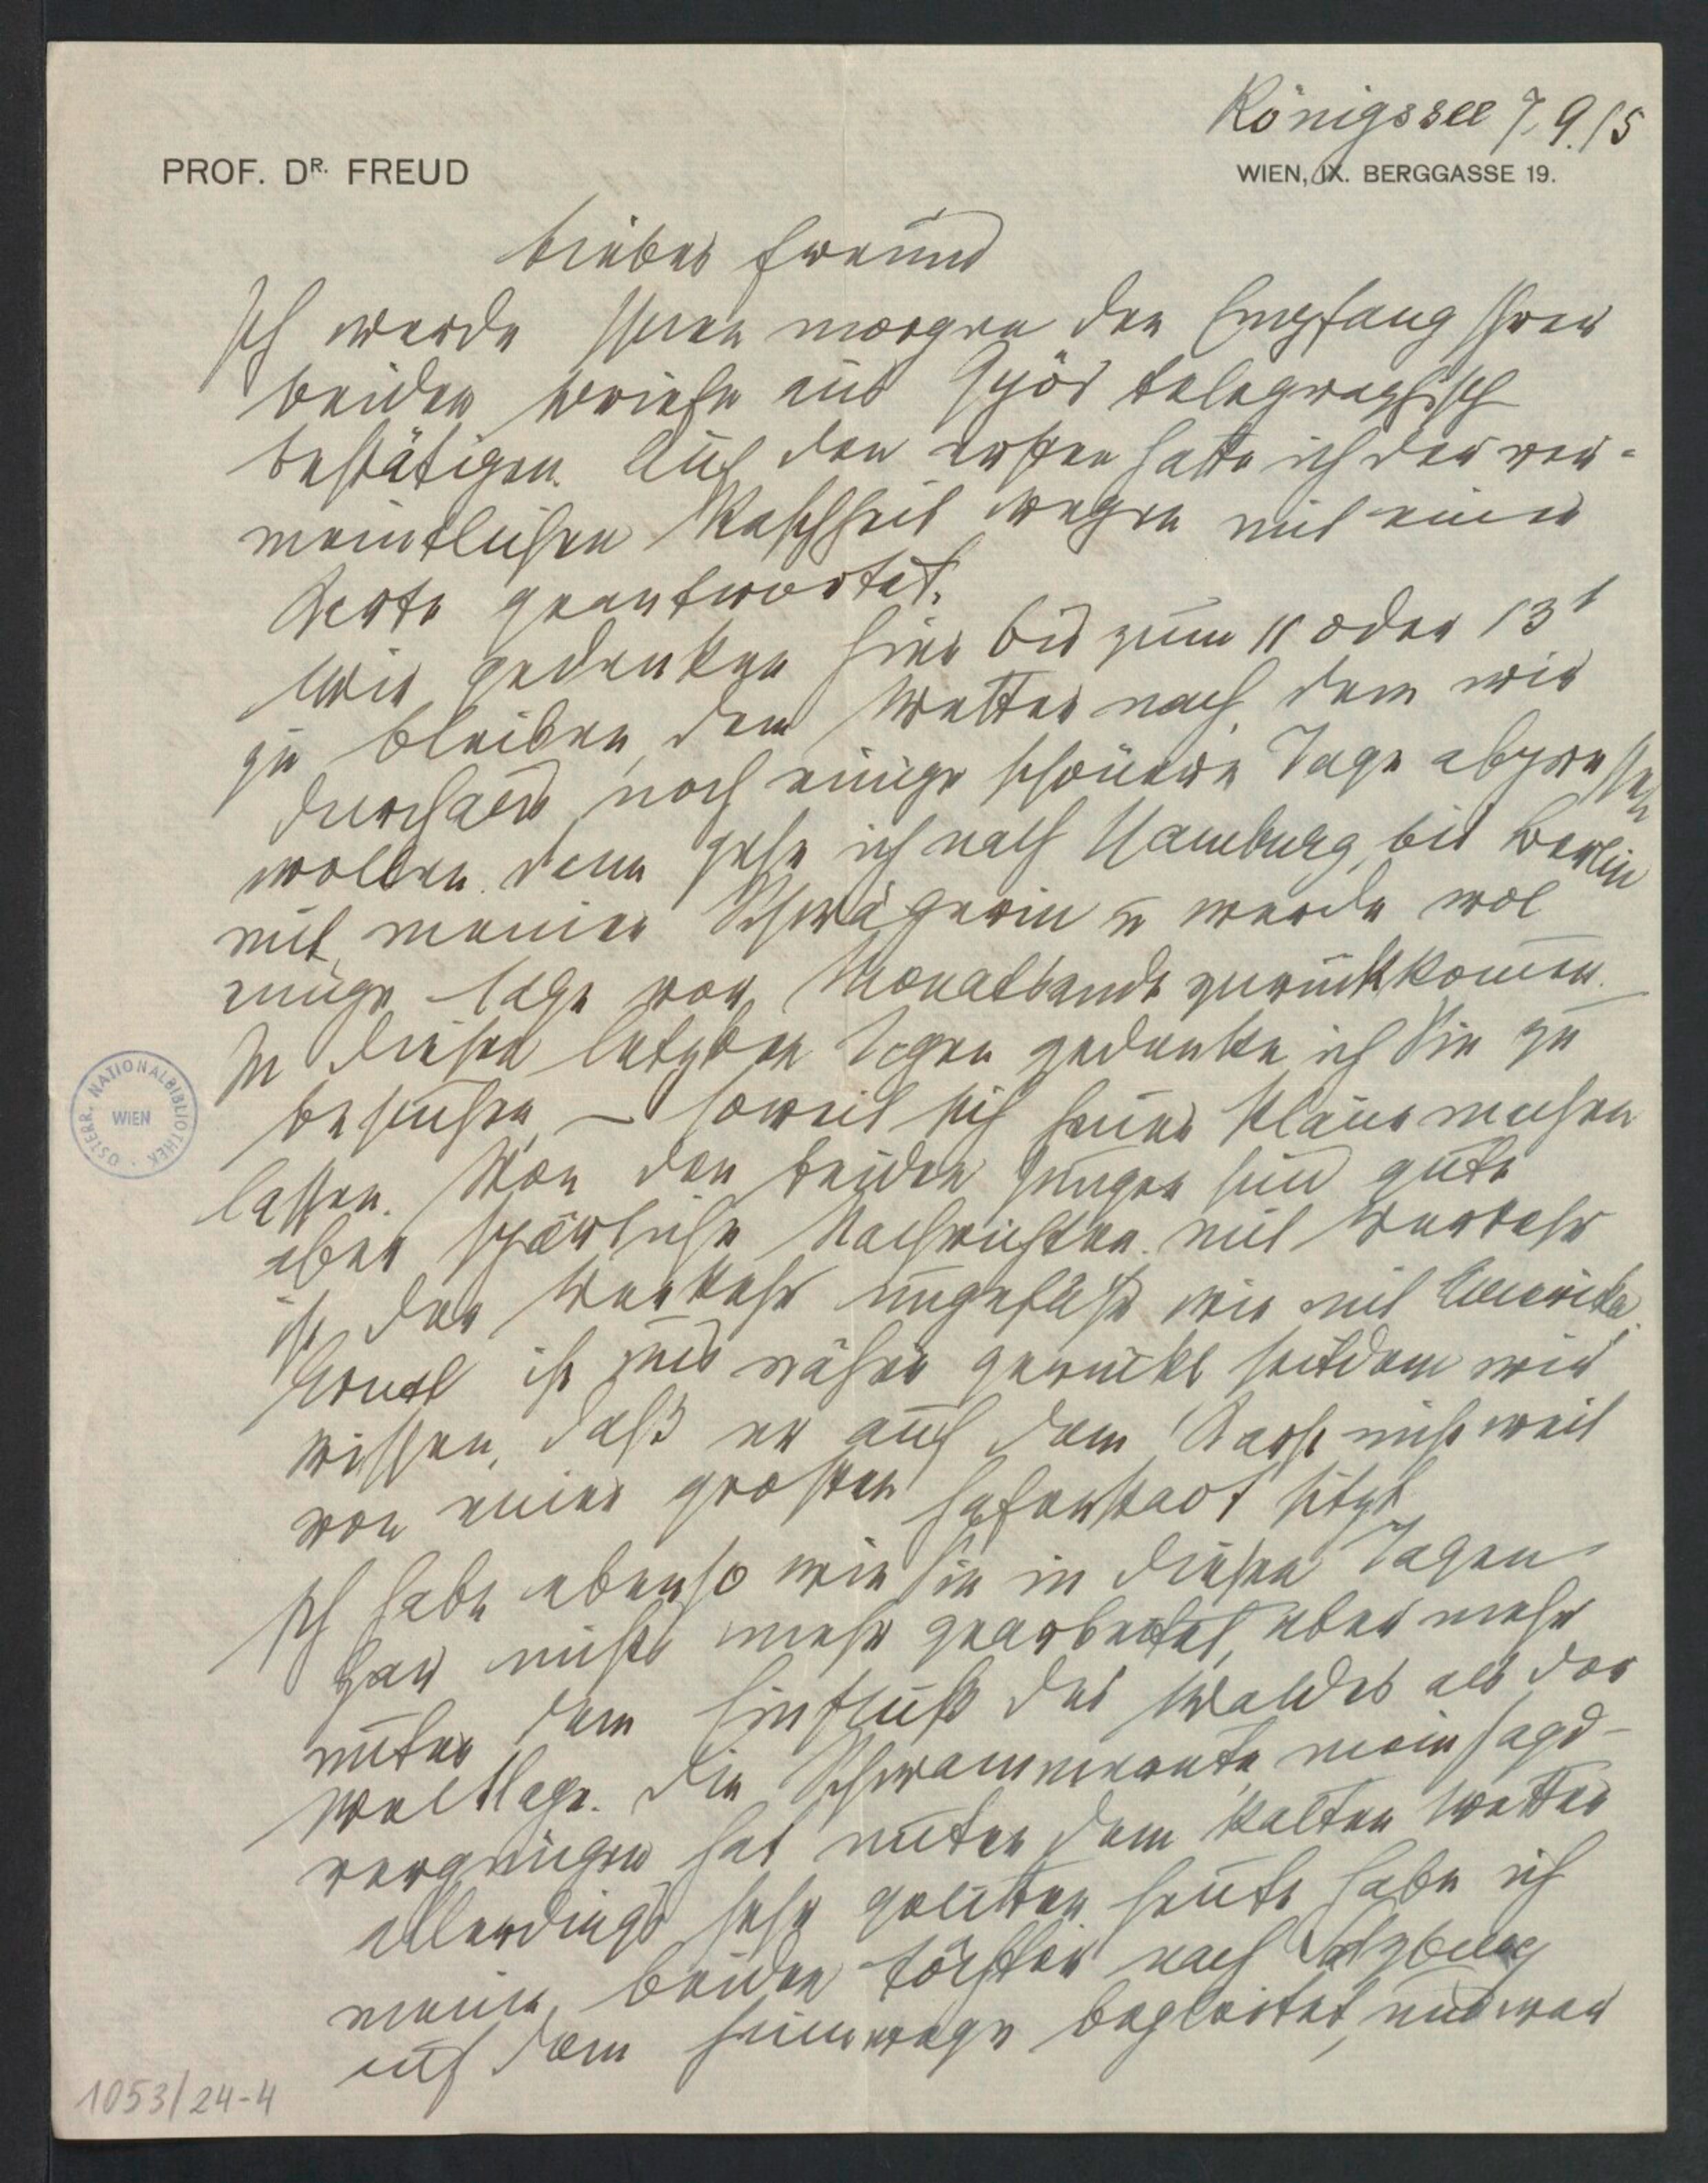 Königssee 7.9.15
PROF. DR. FREUD
WIEN, IX. BERGGASSE 19.
Lieber Freund
Ich werde Ihnen morgen den Empfang Ihrer
beiden Briefe aus Győr telegraphisch
bestätigen. Auf den ersten hatte ich der ver-
meintlichen Raschheit wegen mit einer
Karte geantwortet.
Wir gedenken hier bis zum 11 oder 13t
zu bleiben, dem Wetter nach, dem wir
durchaus noch einige schönere Tage abpressen
wollen. Dann gehe ich nach Hamburg, bis Berlin
mit meiner Schwägerin u werde wol
einige Tage vor Monatsende zurückkommen.
In diesen letzten Tagen gedenke ich Sie zu
besuchen, – soweit sich heuer Pläne machen
lassen. Von den beiden Jungen sind gute
aber spärliche Nachrichten. mit
ist der Verkehr ungefähr wie mit Amerika.
Ernstl ist uns näher gerückt seitdem wir
wissen, daß er auf dem Karst nicht weit
von einer großen Hafenstadt sitzt.
Ich habe ebenso wie Sie in diesen Tagen
gar nichts mehr gearbeitet, aber mehr
unter dem Einfluß des Waldes als der
Weltlage. Die Schwammernte, mein Jagd-
vergnügen hat unter dem kalten Wetter
allerdings sehr gelitten. Heute habe ich
meine beiden Töchter nach Salzburg
auf dem Heimwege begleitet, und war
ÖSTERR. NATIONALBIBLIOTHEK
WIEN
1053/24-4